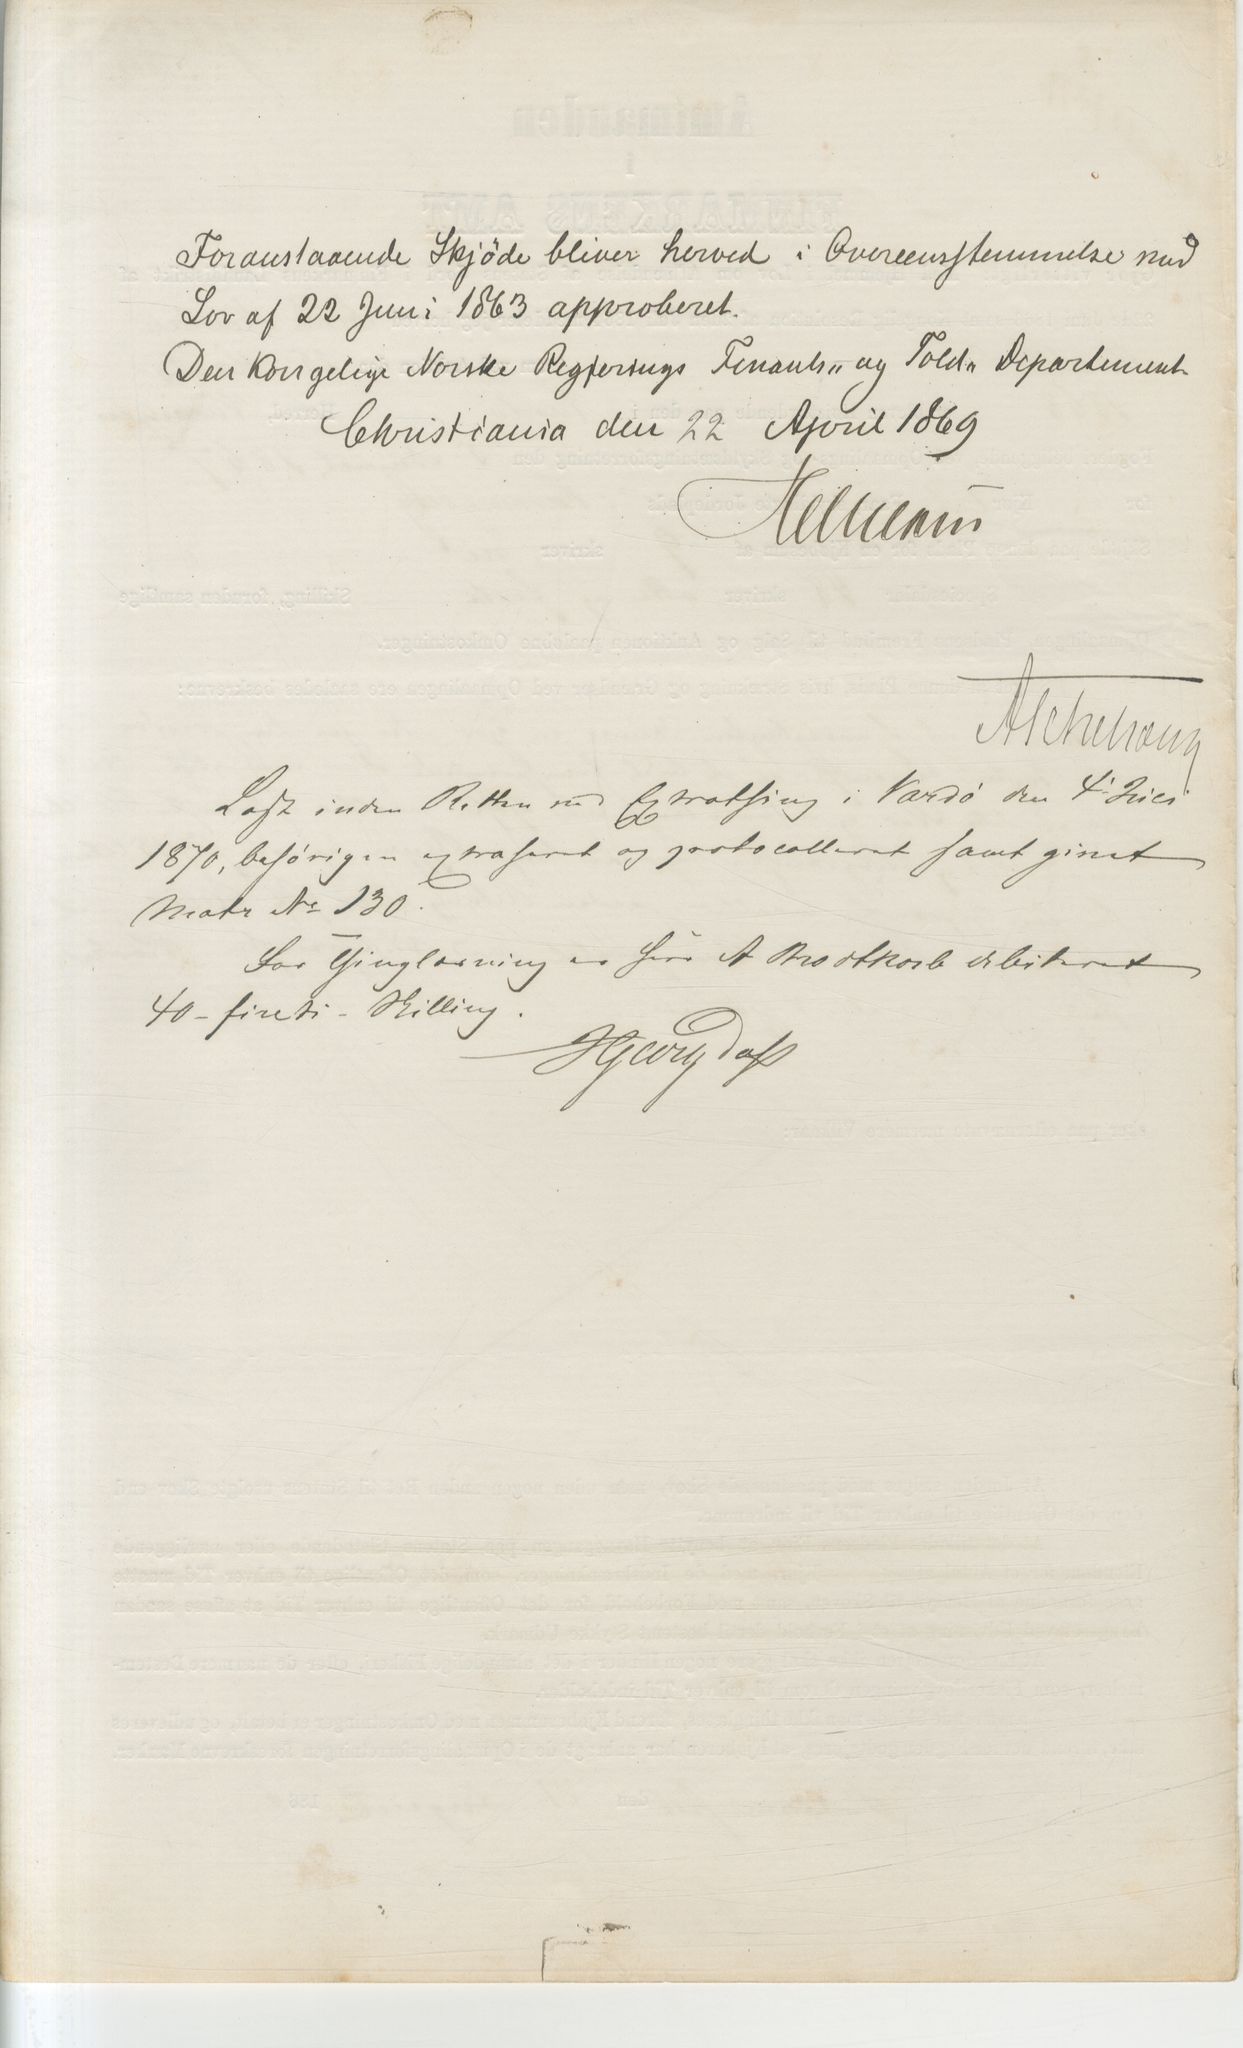 Foranstaaende Skjöde bliver herved i Overeensstemmelse med
Lov af 22 Juni 1863 approberet.
Den Kongelige Norske Regjerings Finants„ og Told„ Departement
Christiania den 22 April 1869
Læst inden Retten ved Extrathing i Vardö den 4'
1870, behörigen extraheret og protocolleret samt givet
Matr No 130.
For Thinglæsning er Herr A Brodtkorb debiteret
40 - fireti - Skilling.